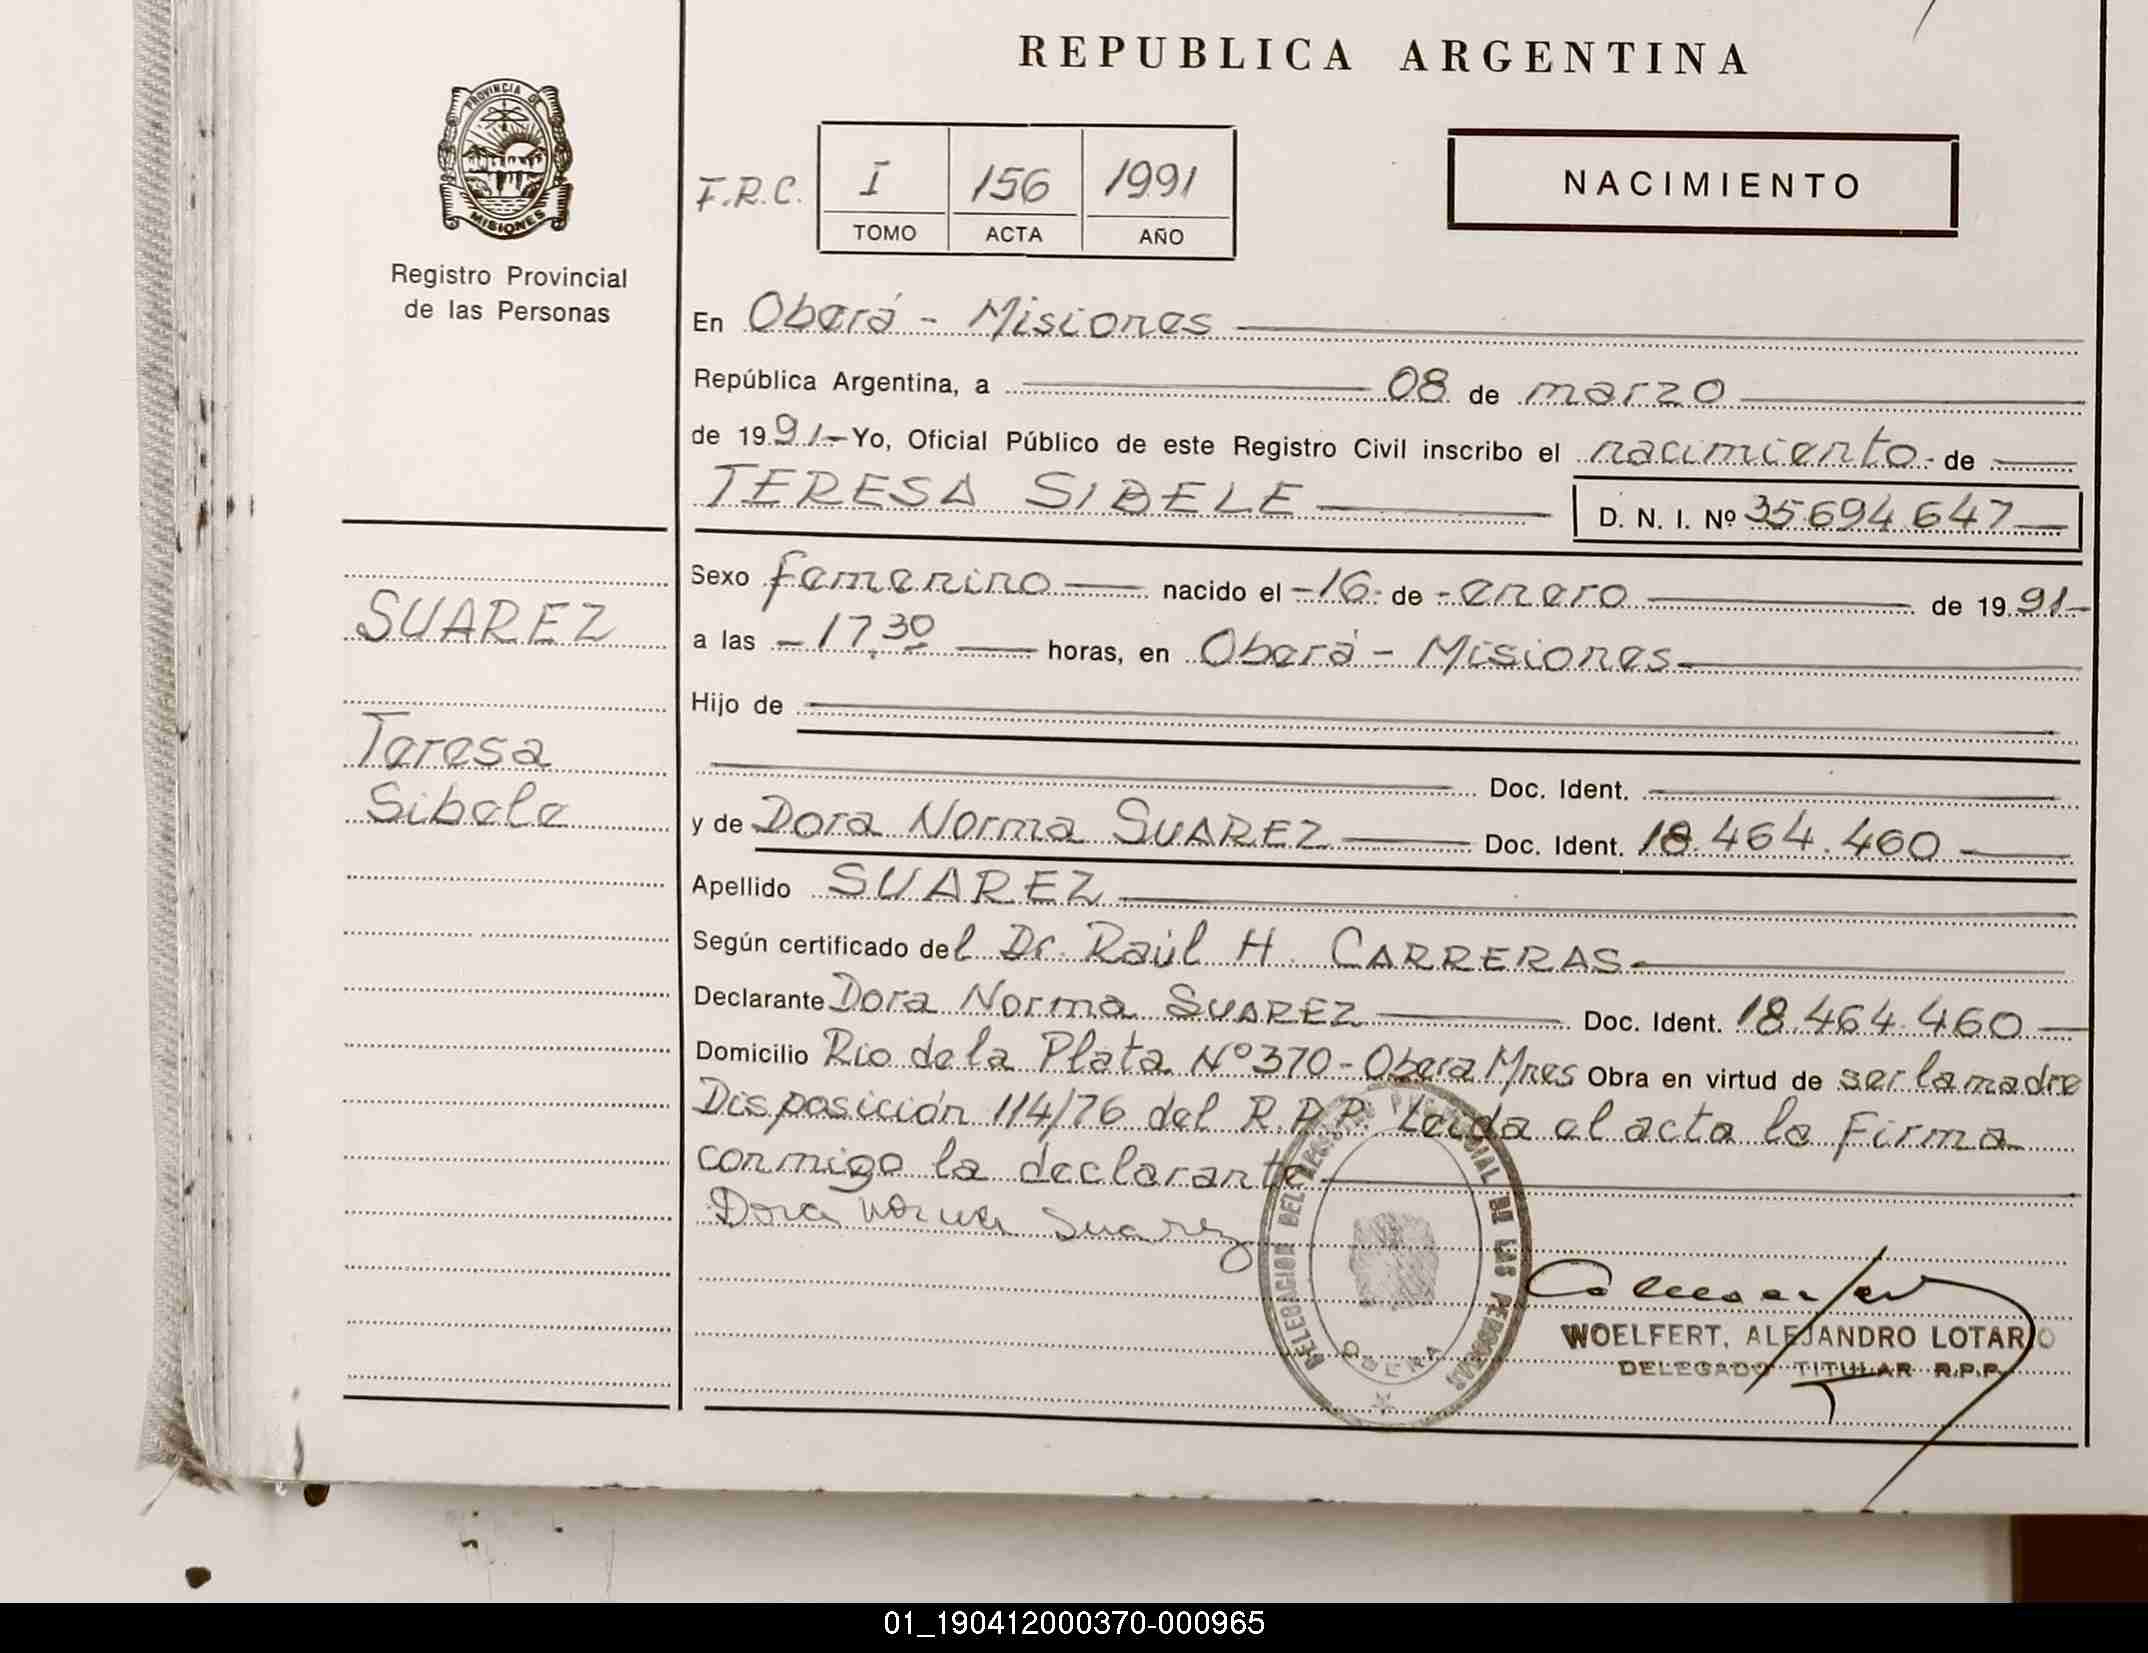 REPUBLICA ARGENTINA
PROVINCIA DE
MISIONES
Registro Provincial
de las Personas
F.R.C.
I 156 1991
TOMO ACTA AÑO
NACIMIENTO
En Oberá - Misiones
República Argentina, a 08 de marzo
de 1991.- Yo, Oficial Público de este Registro Civil inscribo el nacimiento.- de
TERESA SIBELE D. N. I. Nº 35694.647
Sexo femenino nacido el -16- de - enero de 1991-
a las - 17.30 horas, en Oberá - Misiones
Hijo de
Doc. Ident.
y de Dora Norma SUAREZ Doc. Ident. 18.464.460
Apellido SUAREZ
Según certificado del Dr. Raúl H. CARRERAS
Declarante Dora Norma SUAREZ Doc. Ident. 18.464.460
Domicilio Rio de la Plata Nº 370 - Obera Mnes Obra en virtud de ser la madre
Disposición 114/76 del R.P.P. Leida el acta la firma
conmigo la declarante
Dora Norma Suarez
SUAREZ
Teresa
Sibele
DELEGACION DEL REGISTRO PROVINCIAL DE LAS PERSONAS
OBERA
WOELFERT, ALEJANDRO LOTARIO
DELEGADO TITULAR R.P.P.
01_190412000370-000965